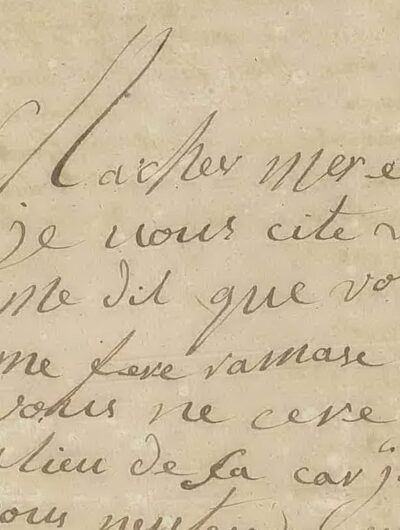 Macher mere
je vous cite
me dit que vo
me fere ramase
vous ne cere
lieu de sa car j
ous